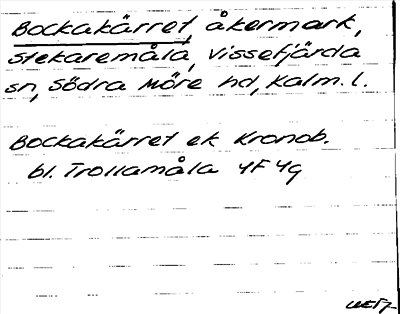 Bockakärret, åkermark,
Stekaremåla, Vissefjärda
sn, Södra Möre hd, Kalm. l.
Bockakärret ek Kronob.
bl. Trollamåla 4F 4g